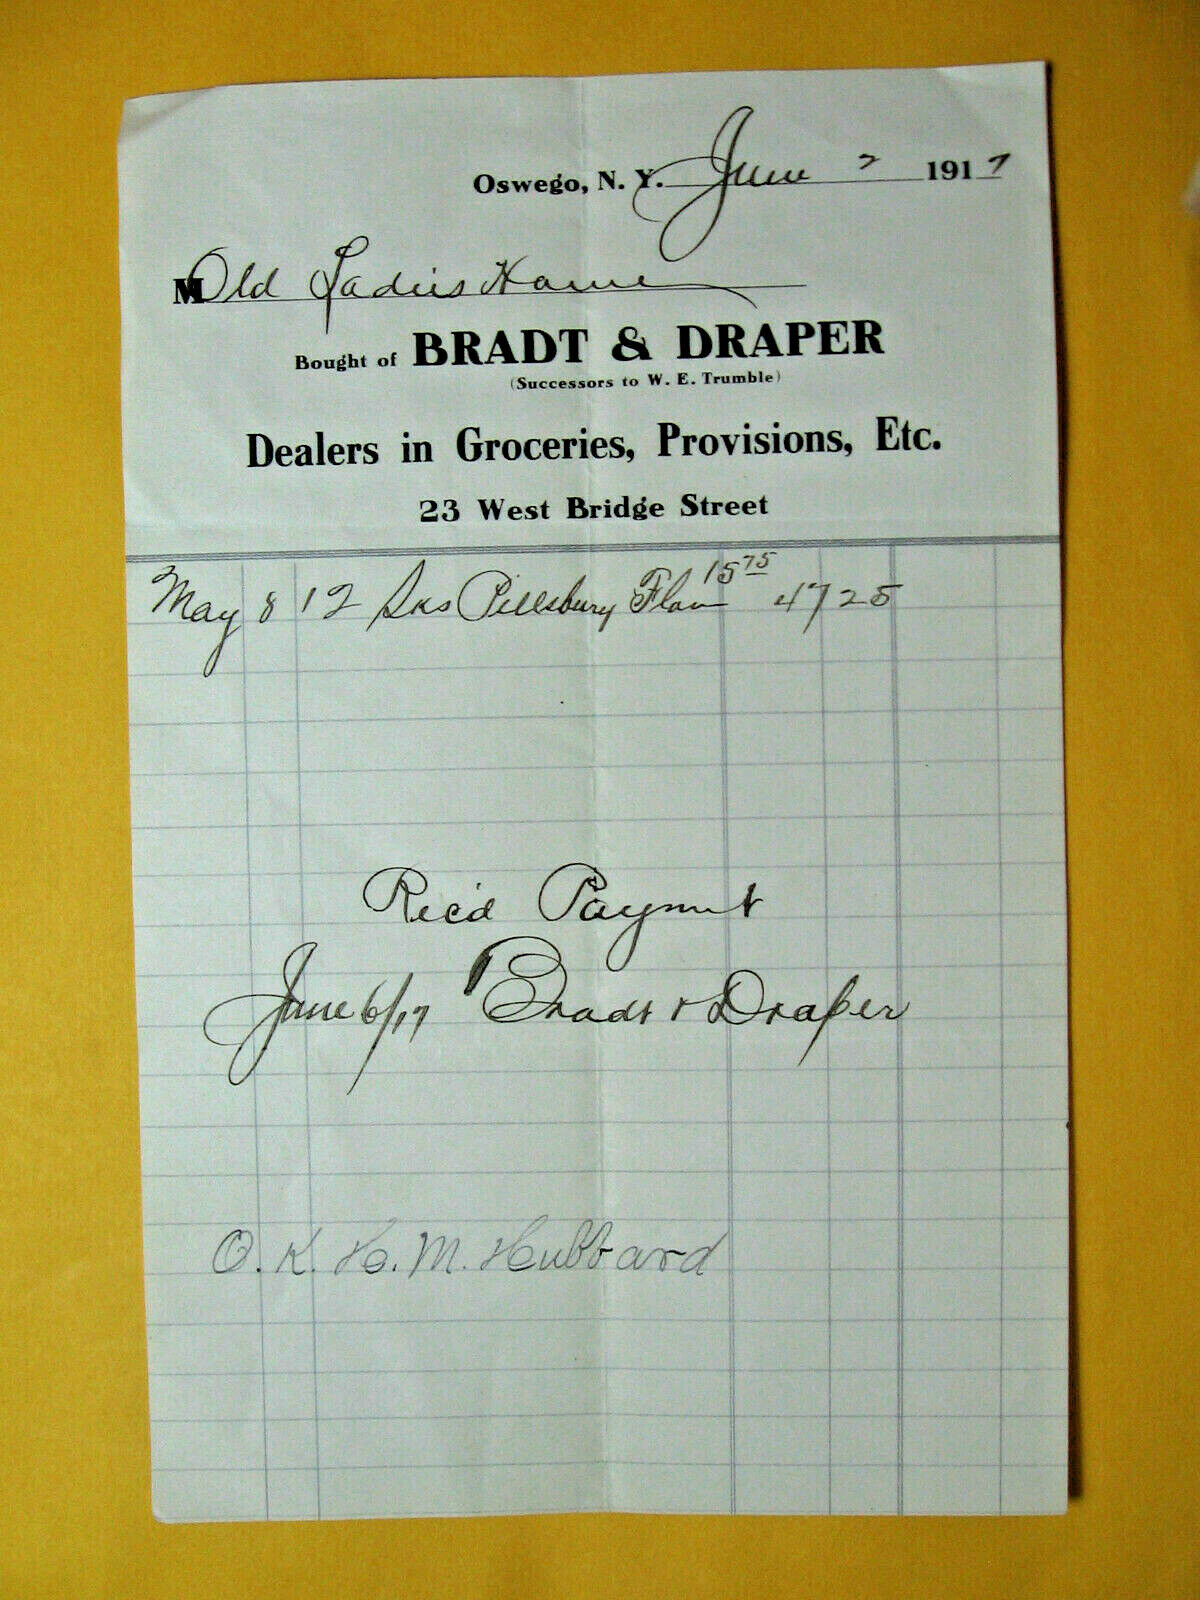 Oswego, N. Y. June 2 1917
M Old Ladies Home
Bought of BRADT & DRAPER
(Successors to W. E. Trumble)
Dealers in Groceries, Provisions, Etc.
23 West Bridge Street
May 8 12 Sks Pillsbury Flour 15 75 47 25
Rec'd Payment
June 6/17 Bradt & Draper
O. K. H. M. Hubbard